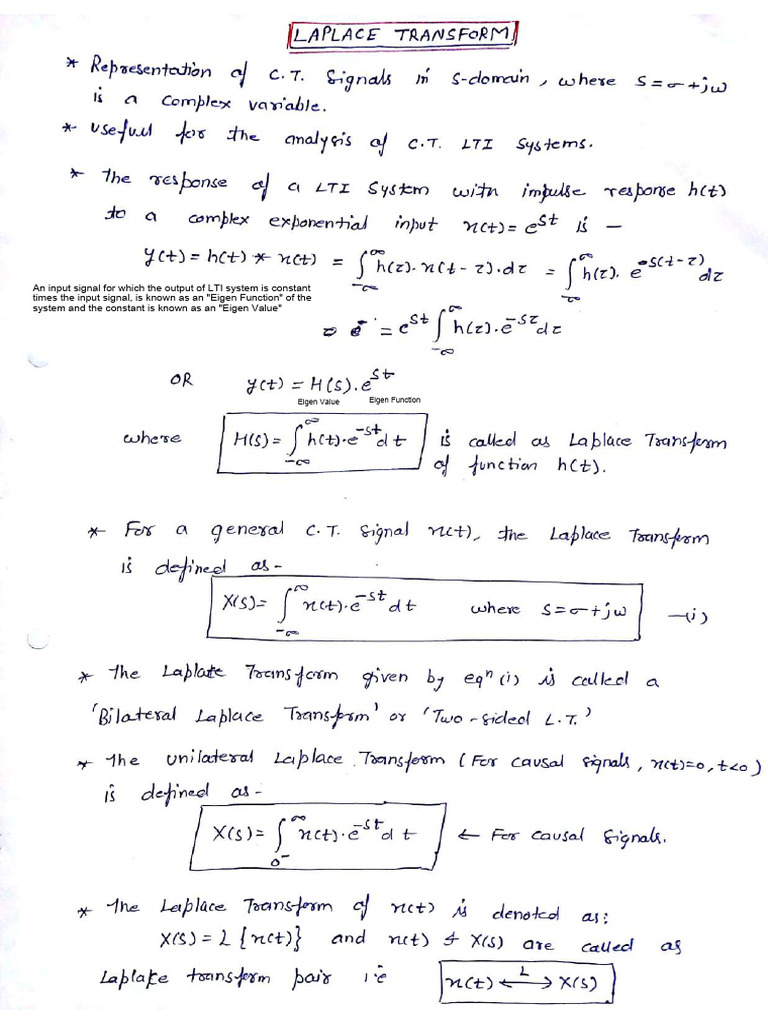 LAPLACE TRANSFORM
* Representation of C.T. Signals in S-domain, where S = σ + jω
is a complex variable.
* Useful for the analysis of C.T. LTI Systems.
* The response of a LTI System with impulse response h(t)
to a complex exponential input x(t) = e^{st} is –
y(t) = h(t) * x(t) = ∫_{-∞}^{∞} h(τ). x(t - τ). dτ = ∫_{-∞}^{∞} h(τ). e^{s(t-τ)} dτ
An input signal for which the output of LTI system is constant
times the input signal, is known as an "Eigen Function" of the
system and the constant is known as an "Eigen Value"
= e^{st} ∫_{-∞}^{∞} h(τ). e^{-sτ} dτ
OR y(t) = H(s). e^{st}
Eigen Value Eigen Function
where H(s) = ∫_{-∞}^{∞} h(t). e^{-st} dt is called as Laplace Transform
of function h(t).
* For a general C.T. signal x(t), the Laplace Transform
is defined as -
X(s) = ∫_{-∞}^{∞} x(t). e^{-st} dt where S = σ + jω —(i)
* The Laplate Transform given by eqⁿ (i) is called a
'Bilateral Laplace Transform' or 'Two-sided L.T.'
* The unilateral Laplace Transform (For causal signals, x(t)=0, t<0)
is defined as -
X(s) = ∫_{0^-}^{∞} x(t). e^{-st} dt ← For causal signals.
* The Laplace Transform of x(t) is denoted as:
X(s) = L {x(t)} and x(t) & X(s) are called as
Laplace transform pair i.e x(t) ←L→ X(s)